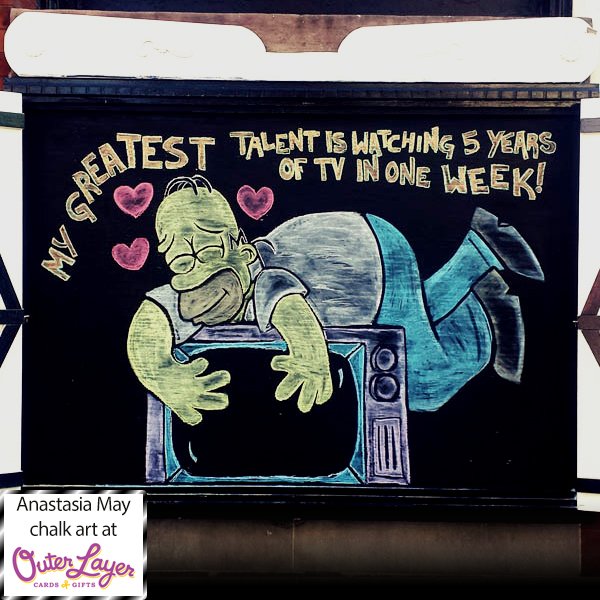 MY GREATEST TALENT IS WATCHING 5 YEARS
OF TV IN ONE WEEK!
Anastasia May
chalk art at
Outer Layer
CARDS & GIFTS